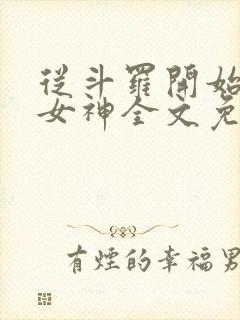 從斗羅開始
女神全文免
有煙的幸福男